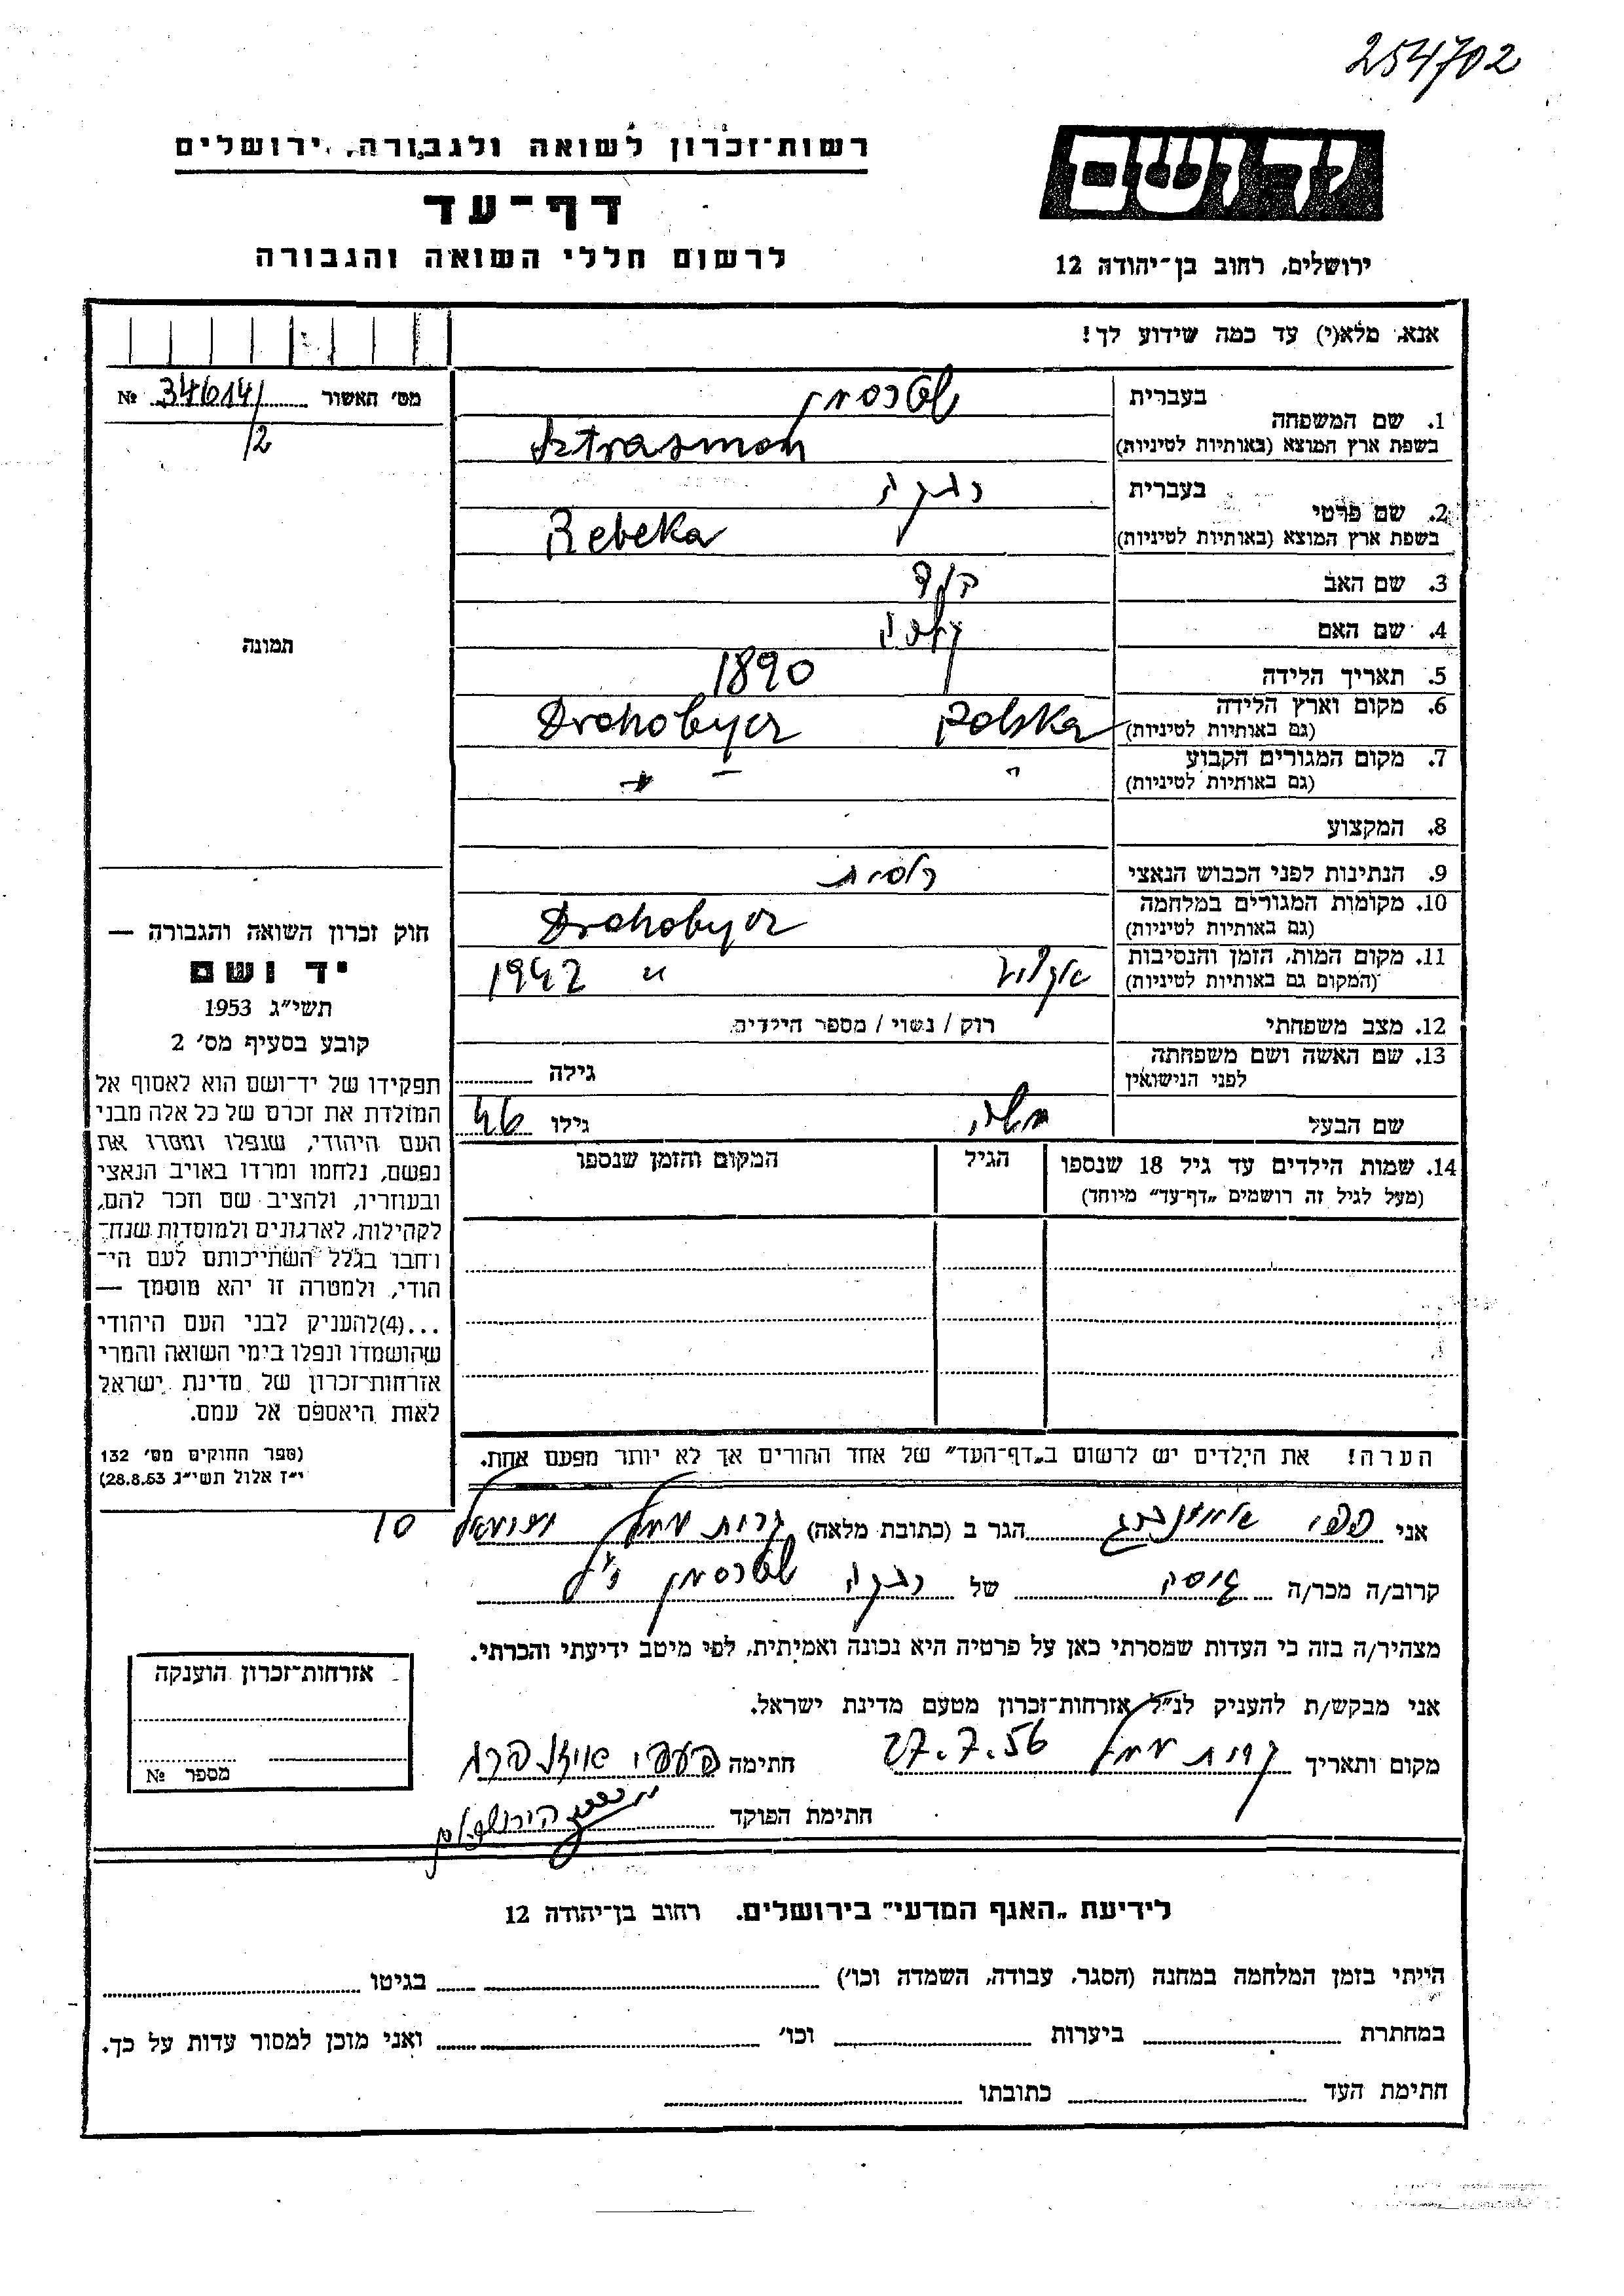 254702
רשות־זכרון לשואה ולגבורה, ירושלים
יד ושם
דף־עד
לרשום חללי השואה והגבורה
ירושלים, רחוב בן־יהודה 12
אנא, מלא(י) עד כמה שידוע לך!
מס' האשור 34614/ №
/2
תמונה
1. שם המשפחה בעברית שטרסמן
בשפת ארץ המוצא (באותיות לטיניות) Sztrasman
2. שם פרטי בעברית רבקה
בשפת ארץ המוצא (באותיות לטיניות) Rebeka
3. שם האב
4. שם האם
5. תאריך הלידה 1890
6. מקום וארץ הלידה Polska Drohobycz
(גם באותיות לטיניות)
7. מקום המגורים הקבוע " –
(גם באותיות לטיניות)
8. המקצוע
9. הנתינות לפני הכבוש הנאצי
10. מקומות המגורים במלחמה Drohobycz
(גם באותיות לטיניות)
11. מקום המות, הזמן והנסיבות " 1942
(המקום גם באותיות לטיניות)
12. מצב משפחתי רוק / נשוי / מספר הילדים
13. שם האשה ושם משפחתה גילה
לפני הנישואין
שם הבעל משה גילו 46
14. שמות הילדים עד גיל 18 שנספו הגיל המקום והזמן שנספו
(מעל לגיל זה רושמים „דף־עד" מיוחד)
הערה! את הילדים יש לרשום ב„דף־העד" של אחד ההורים אך לא יותר מפעם אחת.
חוק זכרון השואה והגבורה —
יד ושם
תשי"ג 1953
קובע בסעיף מס' 2
תפקידו של יד־ושם הוא לאסוף אל
המולדת את זכרם של כל אלה מבני
העם היהודי, שנפלו ומסרו את
נפשם, נלחמו ומרדו באויב הנאצי
ובעוזריו, ולהציב שם וזכר להם,
לקהילות, לארגונים ולמוסדות שנח־
רבו בגלל השתייכותם לעם הי־
הודי, ולמטרה זו יהא מוסמך —
...(4)להעניק לבני העם היהודי
שהושמדו ונפלו בימי השואה והמרי
אזרחות־זכרון של מדינת ישראל
לאות היאספם אל עמם.
(ספר החוקים מס' 132
י"ז אלול תשי"ג 28.8.53)
אני פפי הגר ב (כתובת מלאה) 10
קרוב/ה מכר/ה גיסה של רבקה שטרסמן ז"ל
מצהיר/ה בזה כי העדות שמסרתי כאן על פרטיה היא נכונה ואמיתית, לפי מיטב ידיעתי והכרתי.
אני מבקש/ת להעניק לנ"ל אזרחות־זכרון מטעם מדינת ישראל.
מקום ותאריך 27.7.56 חתימה
חתימת הפוקד
אזרחות־זכרון הוענקה
מספר №
לידיעת „האגף המדעי" בירושלים. רחוב בן־יהודה 12
הייתי בזמן המלחמה במחנה (הסגר, עבודה, השמדה וכו') בגיטו
במחתרת ביערות וכו' ואני מוכן למסור עדות על כך.
חתימת העד כתובתו